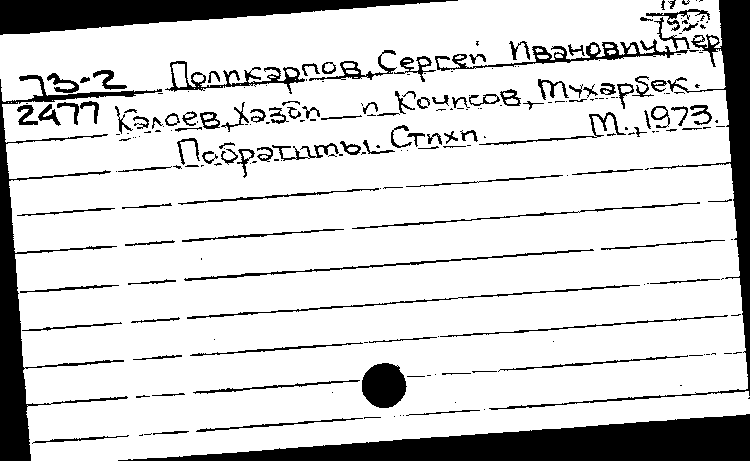 1932
73-2 Поликарпов, Сергей Иванович, пер
2477 Калоев, Хазби и Кочисов, Мухарбек.
Побратимы. Стихи. М., 1973.